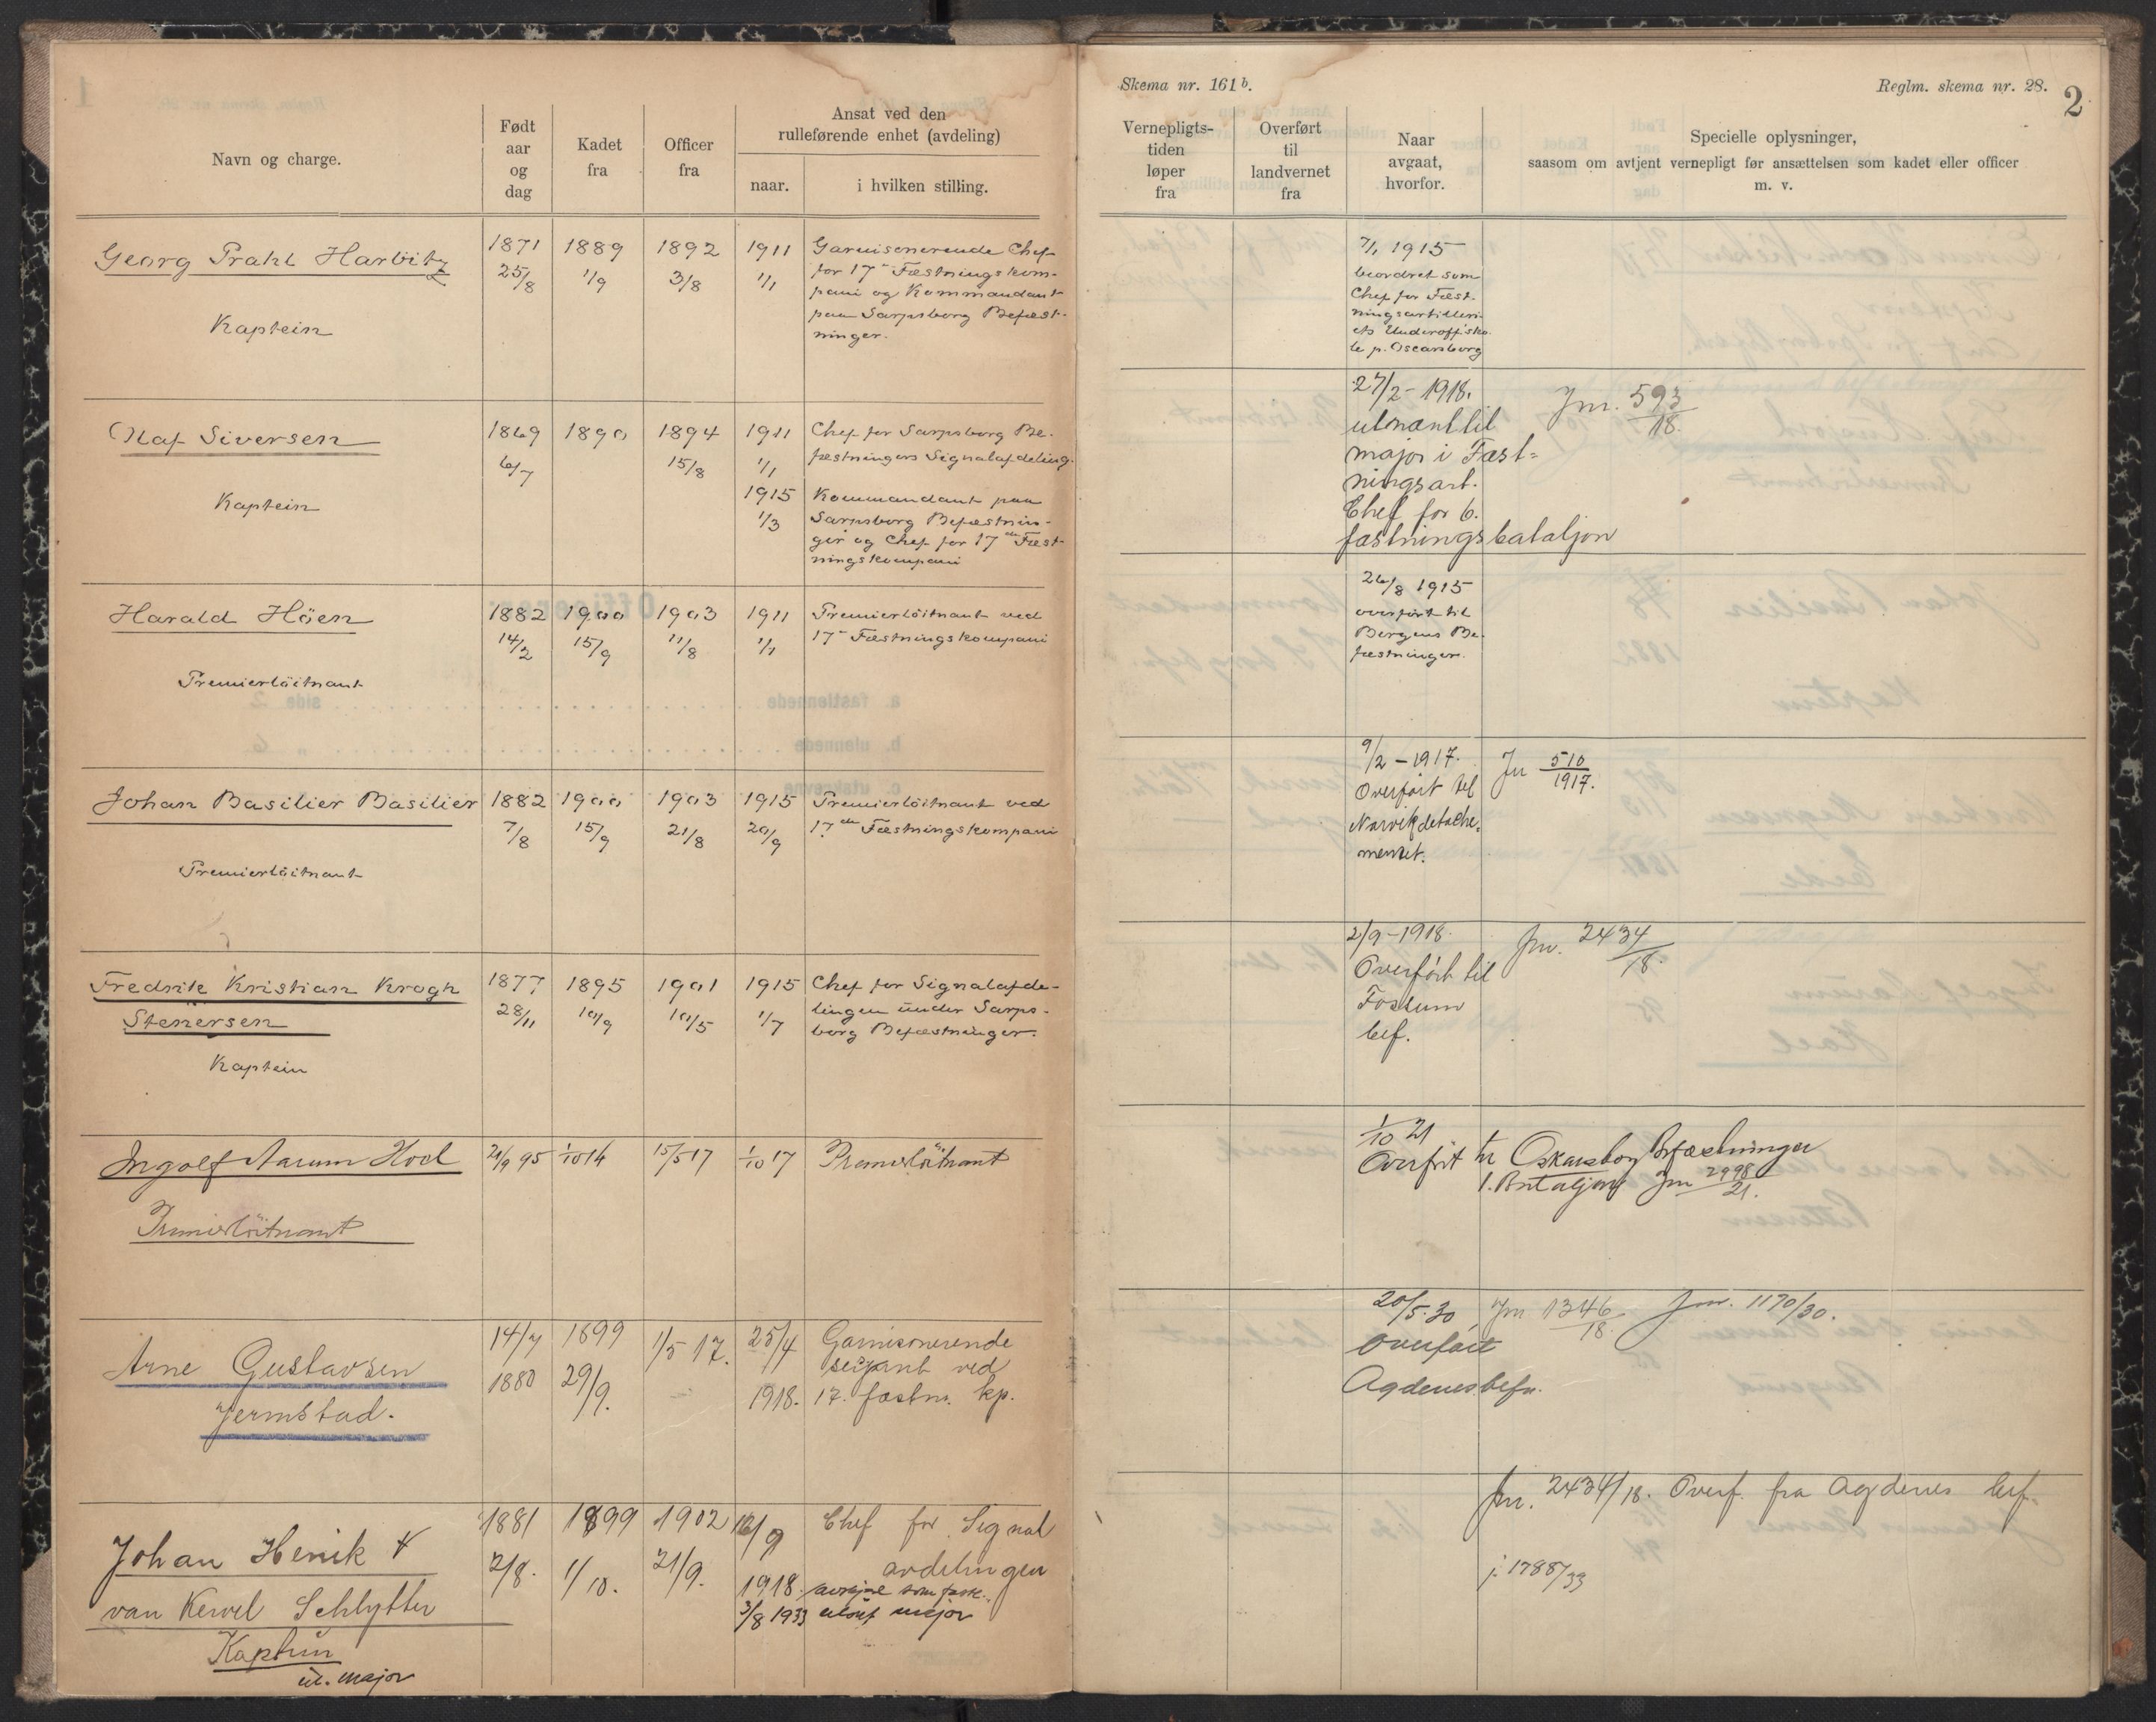 Navn og charge.
Født
aar
og
dag
Kadet
fra
Officer
fra
Ansat ved den
rulleførende enhet (avdeling)
naar.
i hvilken stilling.
Skema nr. 161 b.
Reglm. skema nr. 28.
2
Vernepligts-
tiden
løper
fra
Overført
til
landvernet
fra
Naar
avgaat,
hvorfor.
Specielle oplysninger,
saasom om avtjent vernepligt før ansættelsen som kadet eller officer
m. v.
Georg Prahl Harbitz
Kaptein
1871
25/8
1889
1/9
1892
3/8
1911
1/1
Garnisonerende Chef
for 17de Fæstningskom-
pani og Kommandant
paa Sarpsborg Befæst-
ninger.
7/1 1915
beordret som
Chef for Fæst-
ningsartilleri-
ets Underoff.sko-
le p. Oscarsborg
Olaf Siversen
Kaptein
1869
6/7
1890
1894
15/8
1911
1/1
Chef for Sarpsborg Be-
fæstningers Signalafdeling.
1915
1/3
Kommandant paa
Sarpsborg Befæstnin-
ger og Chef for 17de Fæst-
ningskompani
27/2 - 1918.
utnævnt til
major i Fæst=
ningsart.
Chef for 6.
fæstningsbataljon
Jnr. 593/18.
Harald Höen
Premierlöitnant
1882
14/2
1900
15/9
1903
11/8
1911
1/1
Premierlöitnant ved
17de Fæstningskompani
26/8 1915
overført til
Bergens Be-
fæstninger.
Johan Basilier Basilier
Premierlöitnant
1882
7/8
1900
15/9
1903
21/8
1915
20/9
Premierlöitnant ved
17de Fæstningskompani
9/2 - 1917.
Overført til
Narvikdetache-
mentet.
Jn 510/1917.
Fredrik Kristian Krogh
Stenersen
Kaptein
1877
28/11
1895
10/9
1901
10/5
1915
1/7
Chef for Signalafde-
lingen under Sarps-
borg Befæstninger.
2/9 - 1918.
Overført til
Fossum
bef.
Jnr. 2434/18.
Ingolf Aarum Hoel
Premierlöitnant
21/9 95
1/10 14
15/5 17
1/10 17
Premierlöitnant
1/10 21
Overført til Oskarsborg Befæstninger
1. Bataljon Jnr 2998/21.
Arne Gustavsen
Jermstad.
14/7
1880
1899
29/9.
1/5 17.
25/4
1918.
Garnisonerende
serjant ved
17. fæstn. kp.
20/5.30
overført
Agdenes befn.
Jnr 1346/18.
Jnr. 1170/30.
Johan Henrik
van Kervel Schlytter
Kaptein
ut. major
1881
2/8.
1899
1/10.
1902
21/9.
16/9
1918.
Chef for Signal
avdelingen
3/8 1933
utsk. major
Jnr. 2434/18. Overf. fra Agdenes bef.
j. 1788/33